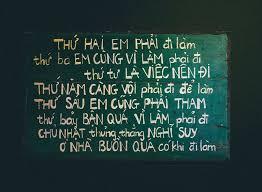 THỨ HAI EM PHẢI đi làm
thứ ba EM CŨNG VÌ LÀM phải đi
thứ tư LÀ VIỆC NÊN ĐI
THỨ NĂM CÀNG VỘI phải đi để làm
THỨ SÁU EM CŨNG PHẢI THAM
thứ bảy BẬN QUÁ VÌ LÀM phải đi
CHỦ NHẬT thỉnh thoảng NGHĨ SUY
Ở NHÀ BUỒN QUÁ có khi đi làm